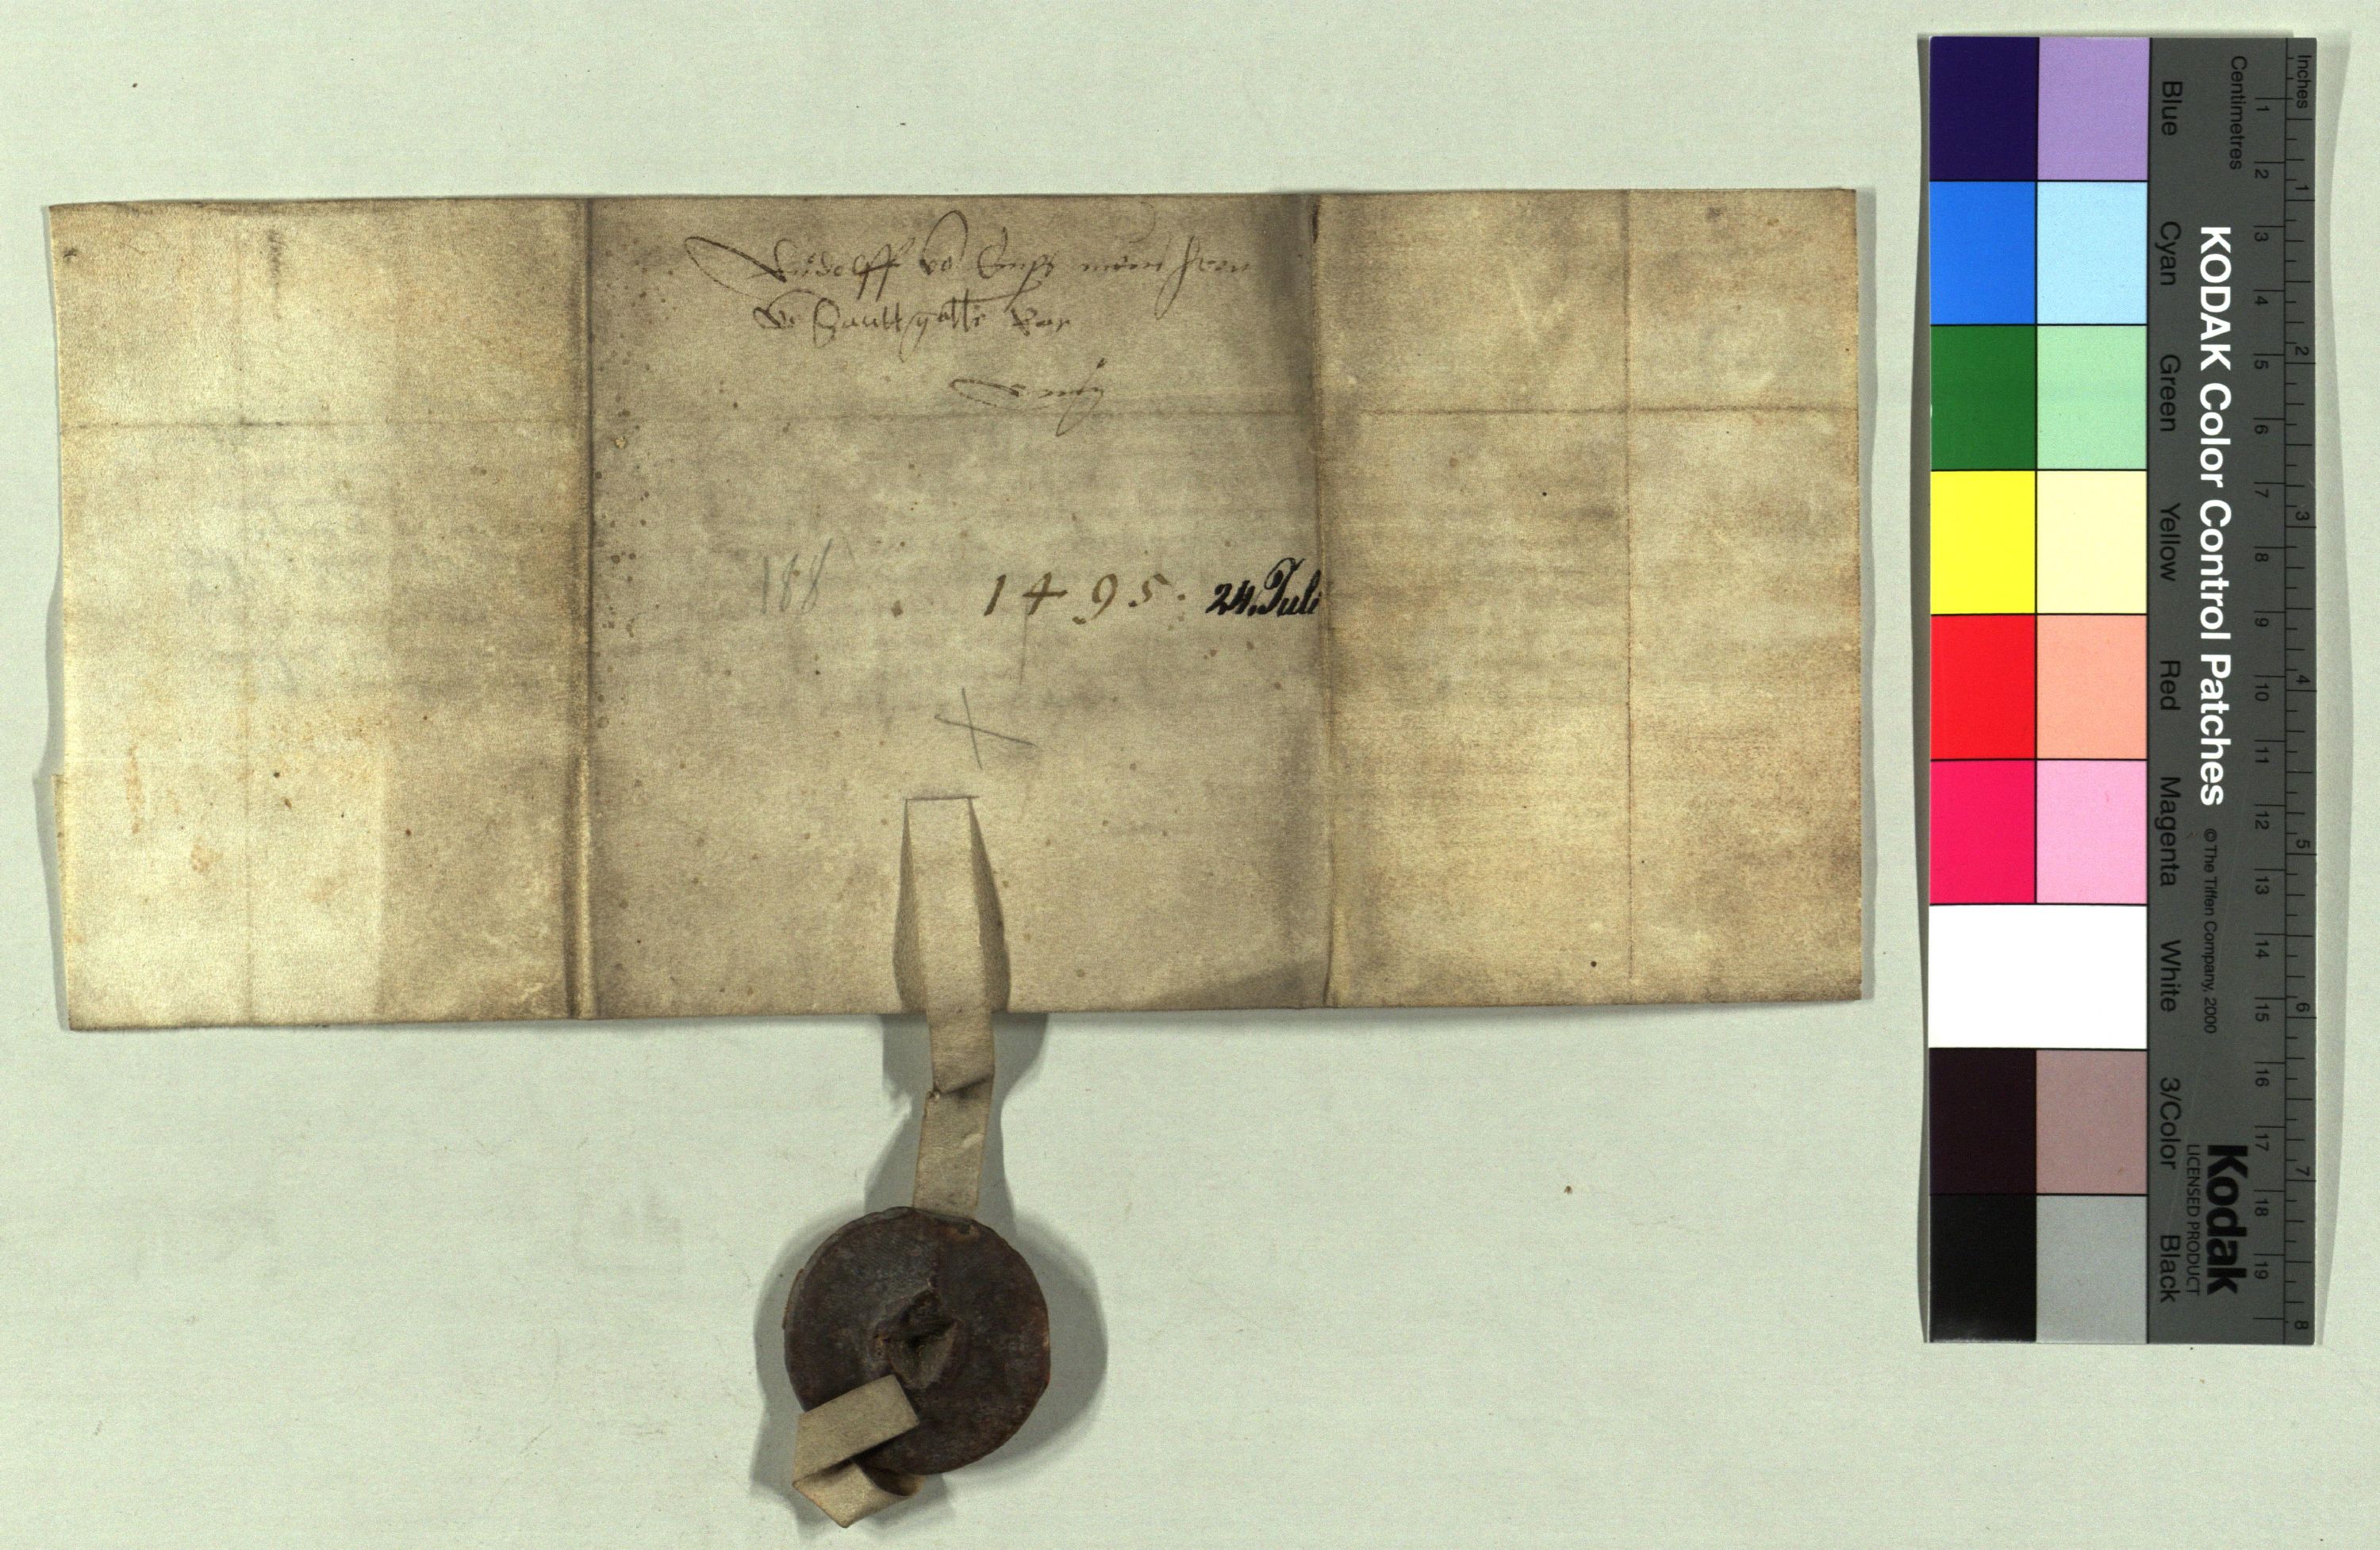 Rüdolff vo Emps
vo Santt
188 . 1495. 24. Juli
Inches
Centimetres
1 2 3 4 5 6 7 8 9 10 11 12 13 14 15 16 17 18 19
1 2 3 4 5 6 7 8
KODAK Color Control Patches © The Tiffen Company, 2000
Kodak
LICENSED PRODUCT
Blue Cyan Green Yellow Red Magenta White 3/Color Black